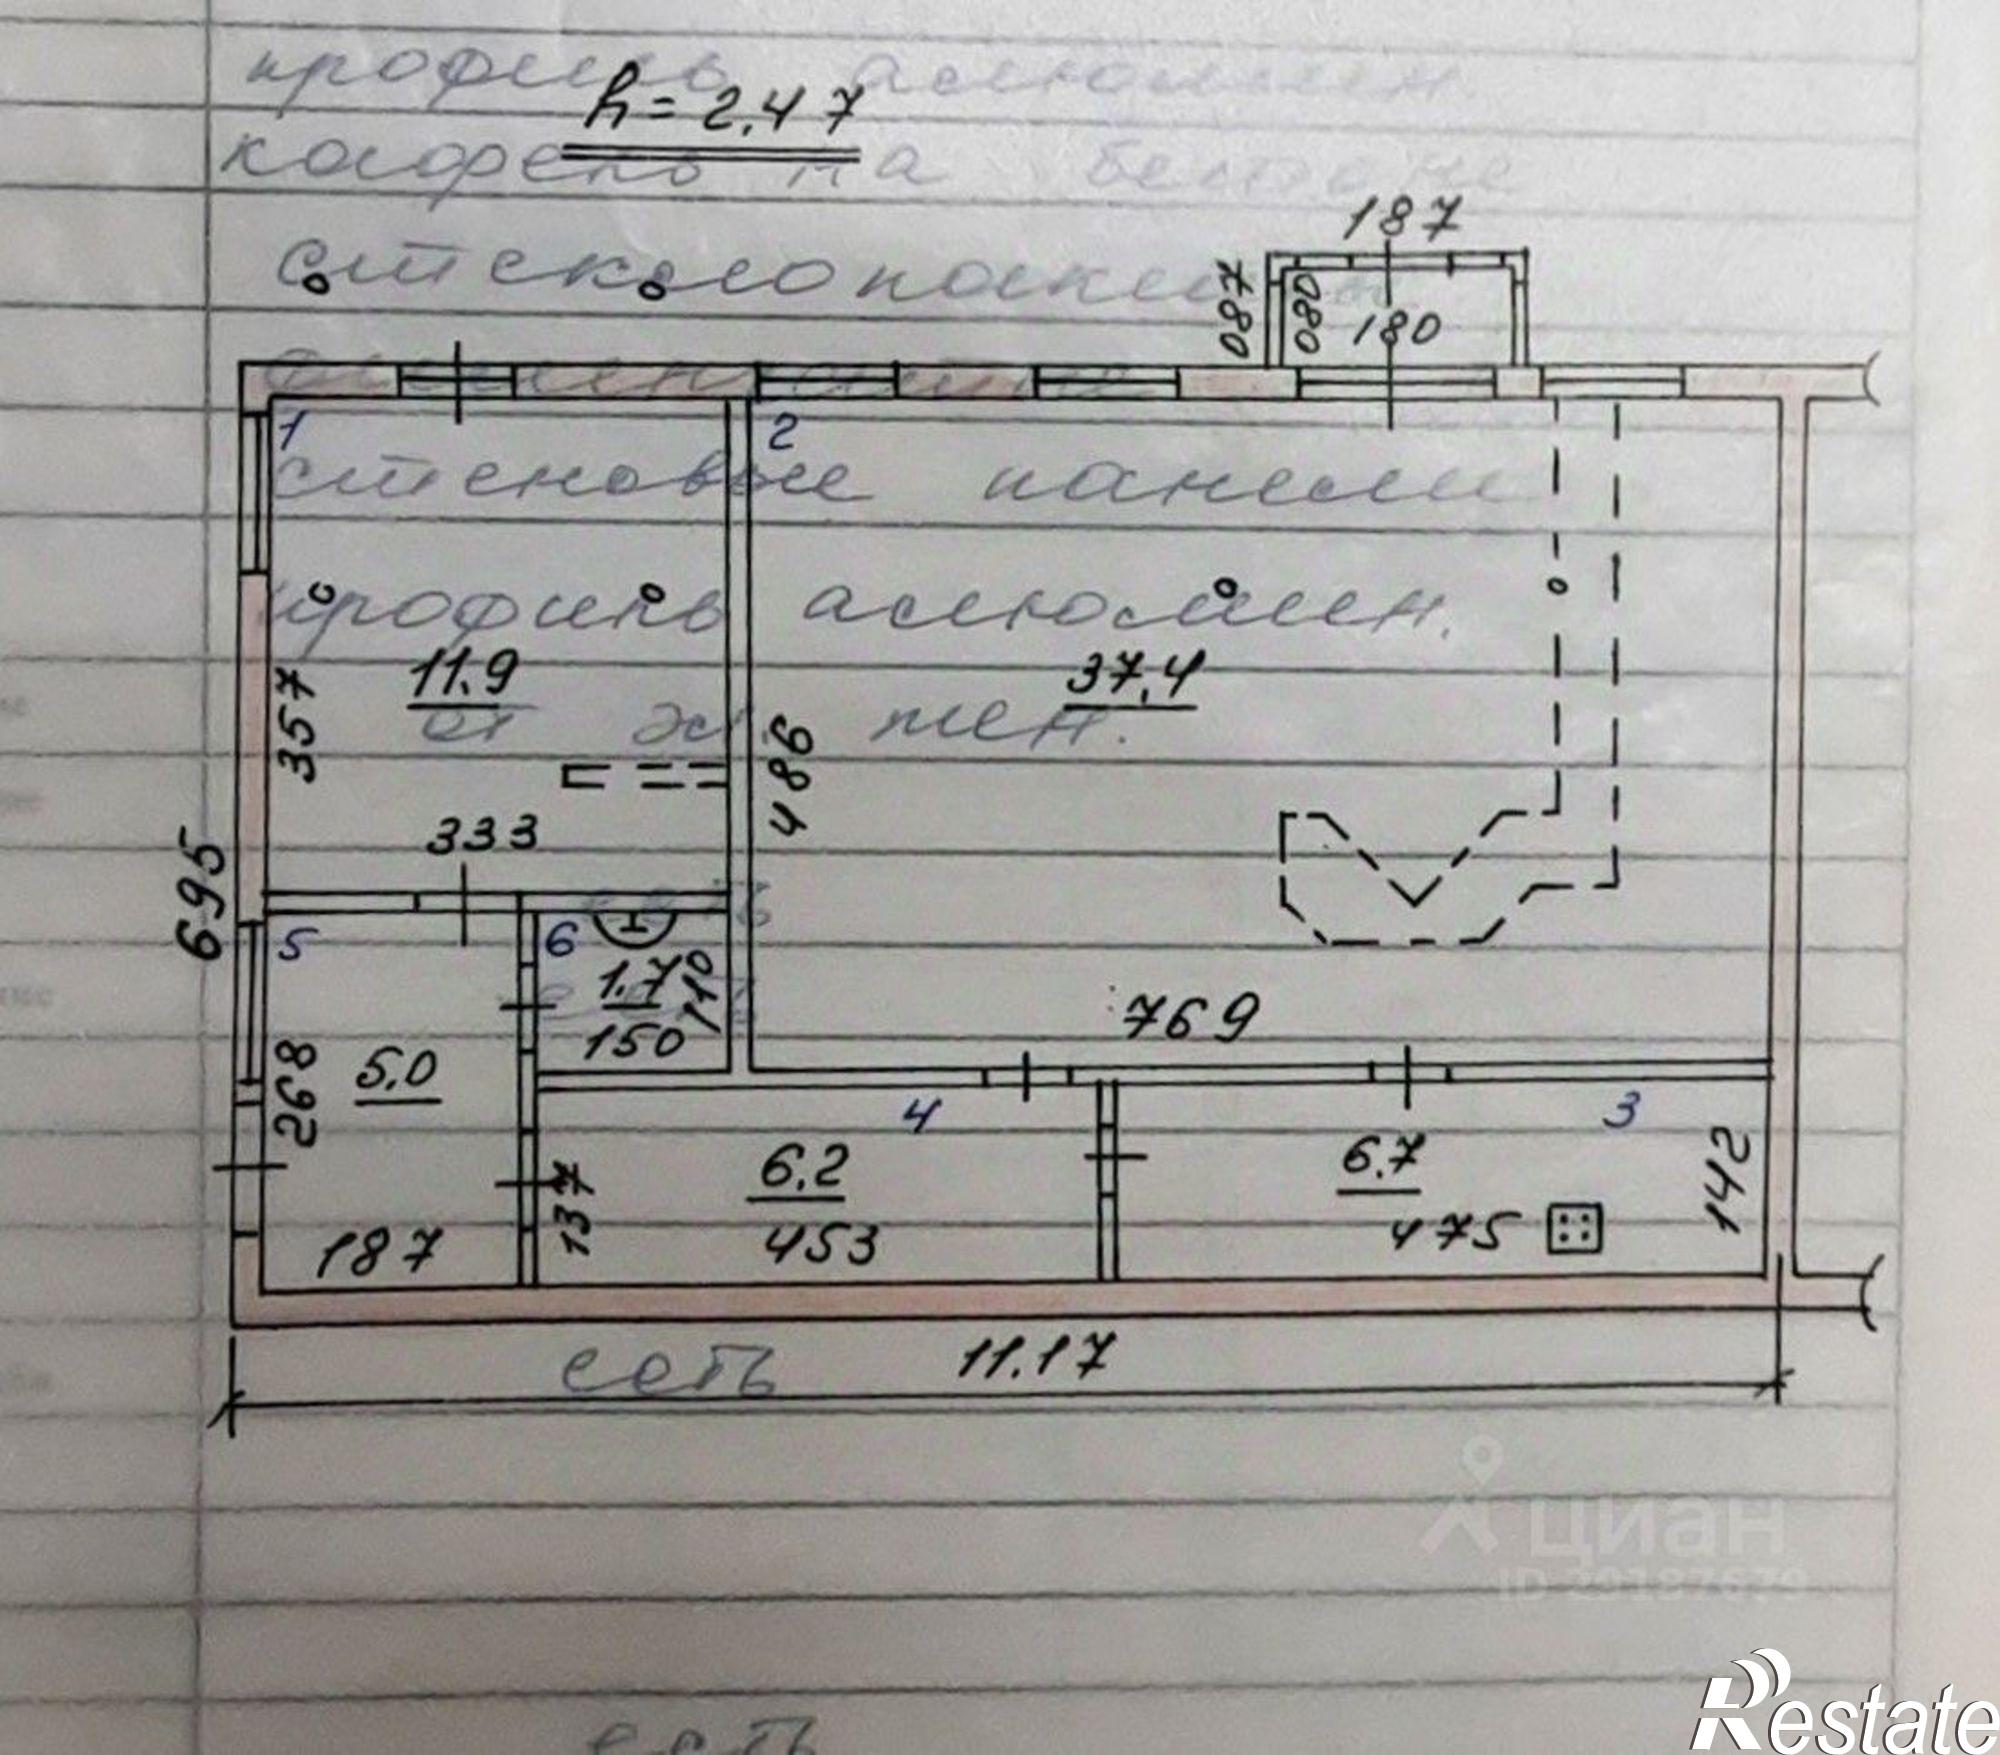 профиль алюмин.
h = 2,47
кафель на бетоне
187
стеклопакет
087
080
180
1
2
стеновые панели
профиль алюмин.
11.9
37,4
357
486
333
695
5
6
1.7
110
150
769
268
5.0
4
3
6.2
6.7
137
142
453
475
187
сеть
11.17
циан
ID 29187679
Restate
сеть